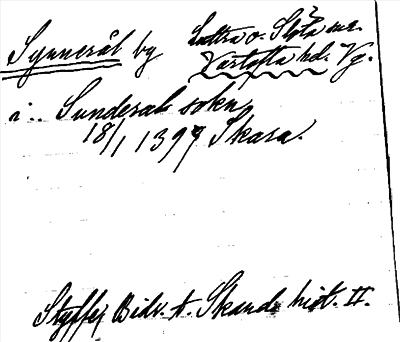 Synnerål by Luttra o. Slöta snr.
Vartofta hd. Vg.
i: Sunderaal sokn
18/1 1397 Skara.
Styffes Bidr. t. Skand. hist. II.